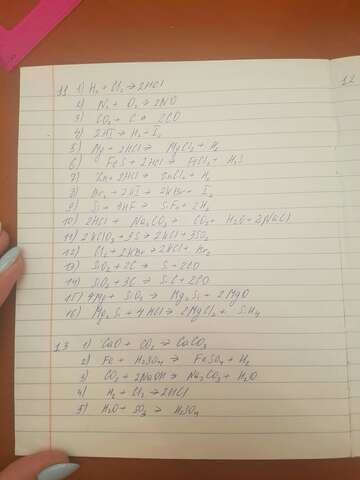 11 1) H₂ + Cl₂ → 2HCl
2) N₂ + O₂ → 2NO
3) CO₂ + C → 2CO
4) 2HI → H₂ + I₂
5) Mg + 2HCl → MgCl₂ + H₂
6) FeS + 2HCl → FeCl₂ + H₂S
7) Zn + 2HCl → ZnCl₂ + H₂
8) Br₂ + 2KI → 2KBr + I₂
9) Si + 4HF → SiF₄ + 2H₂
10) 2HCl + Na₂CO₃ → CO₂ + H₂O + 2NaCl
11) 2KClO₃ + 3S → 2KCl + 3SO₂
12) Cl₂ + 2KBr → 2KCl + Br₂
13) SiO₂ + 2C → Si + 2CO
14) SiO₂ + 3C → SiC + 2CO
15) 4Mg + SiO₂ → Mg₂Si + 2MgO
16) Mg₂Si + 4HCl → 2MgCl₂ + SiH₄
13 1) CaO + CO₂ → CaCO₃
2) Fe + H₂SO₄ → FeSO₄ + H₂
3) CO₂ + 2NaOH → Na₂CO₃ + H₂O
4) H₂ + Cl₂ → 2HCl
5) H₂O + SO₃ → H₂SO₄
12